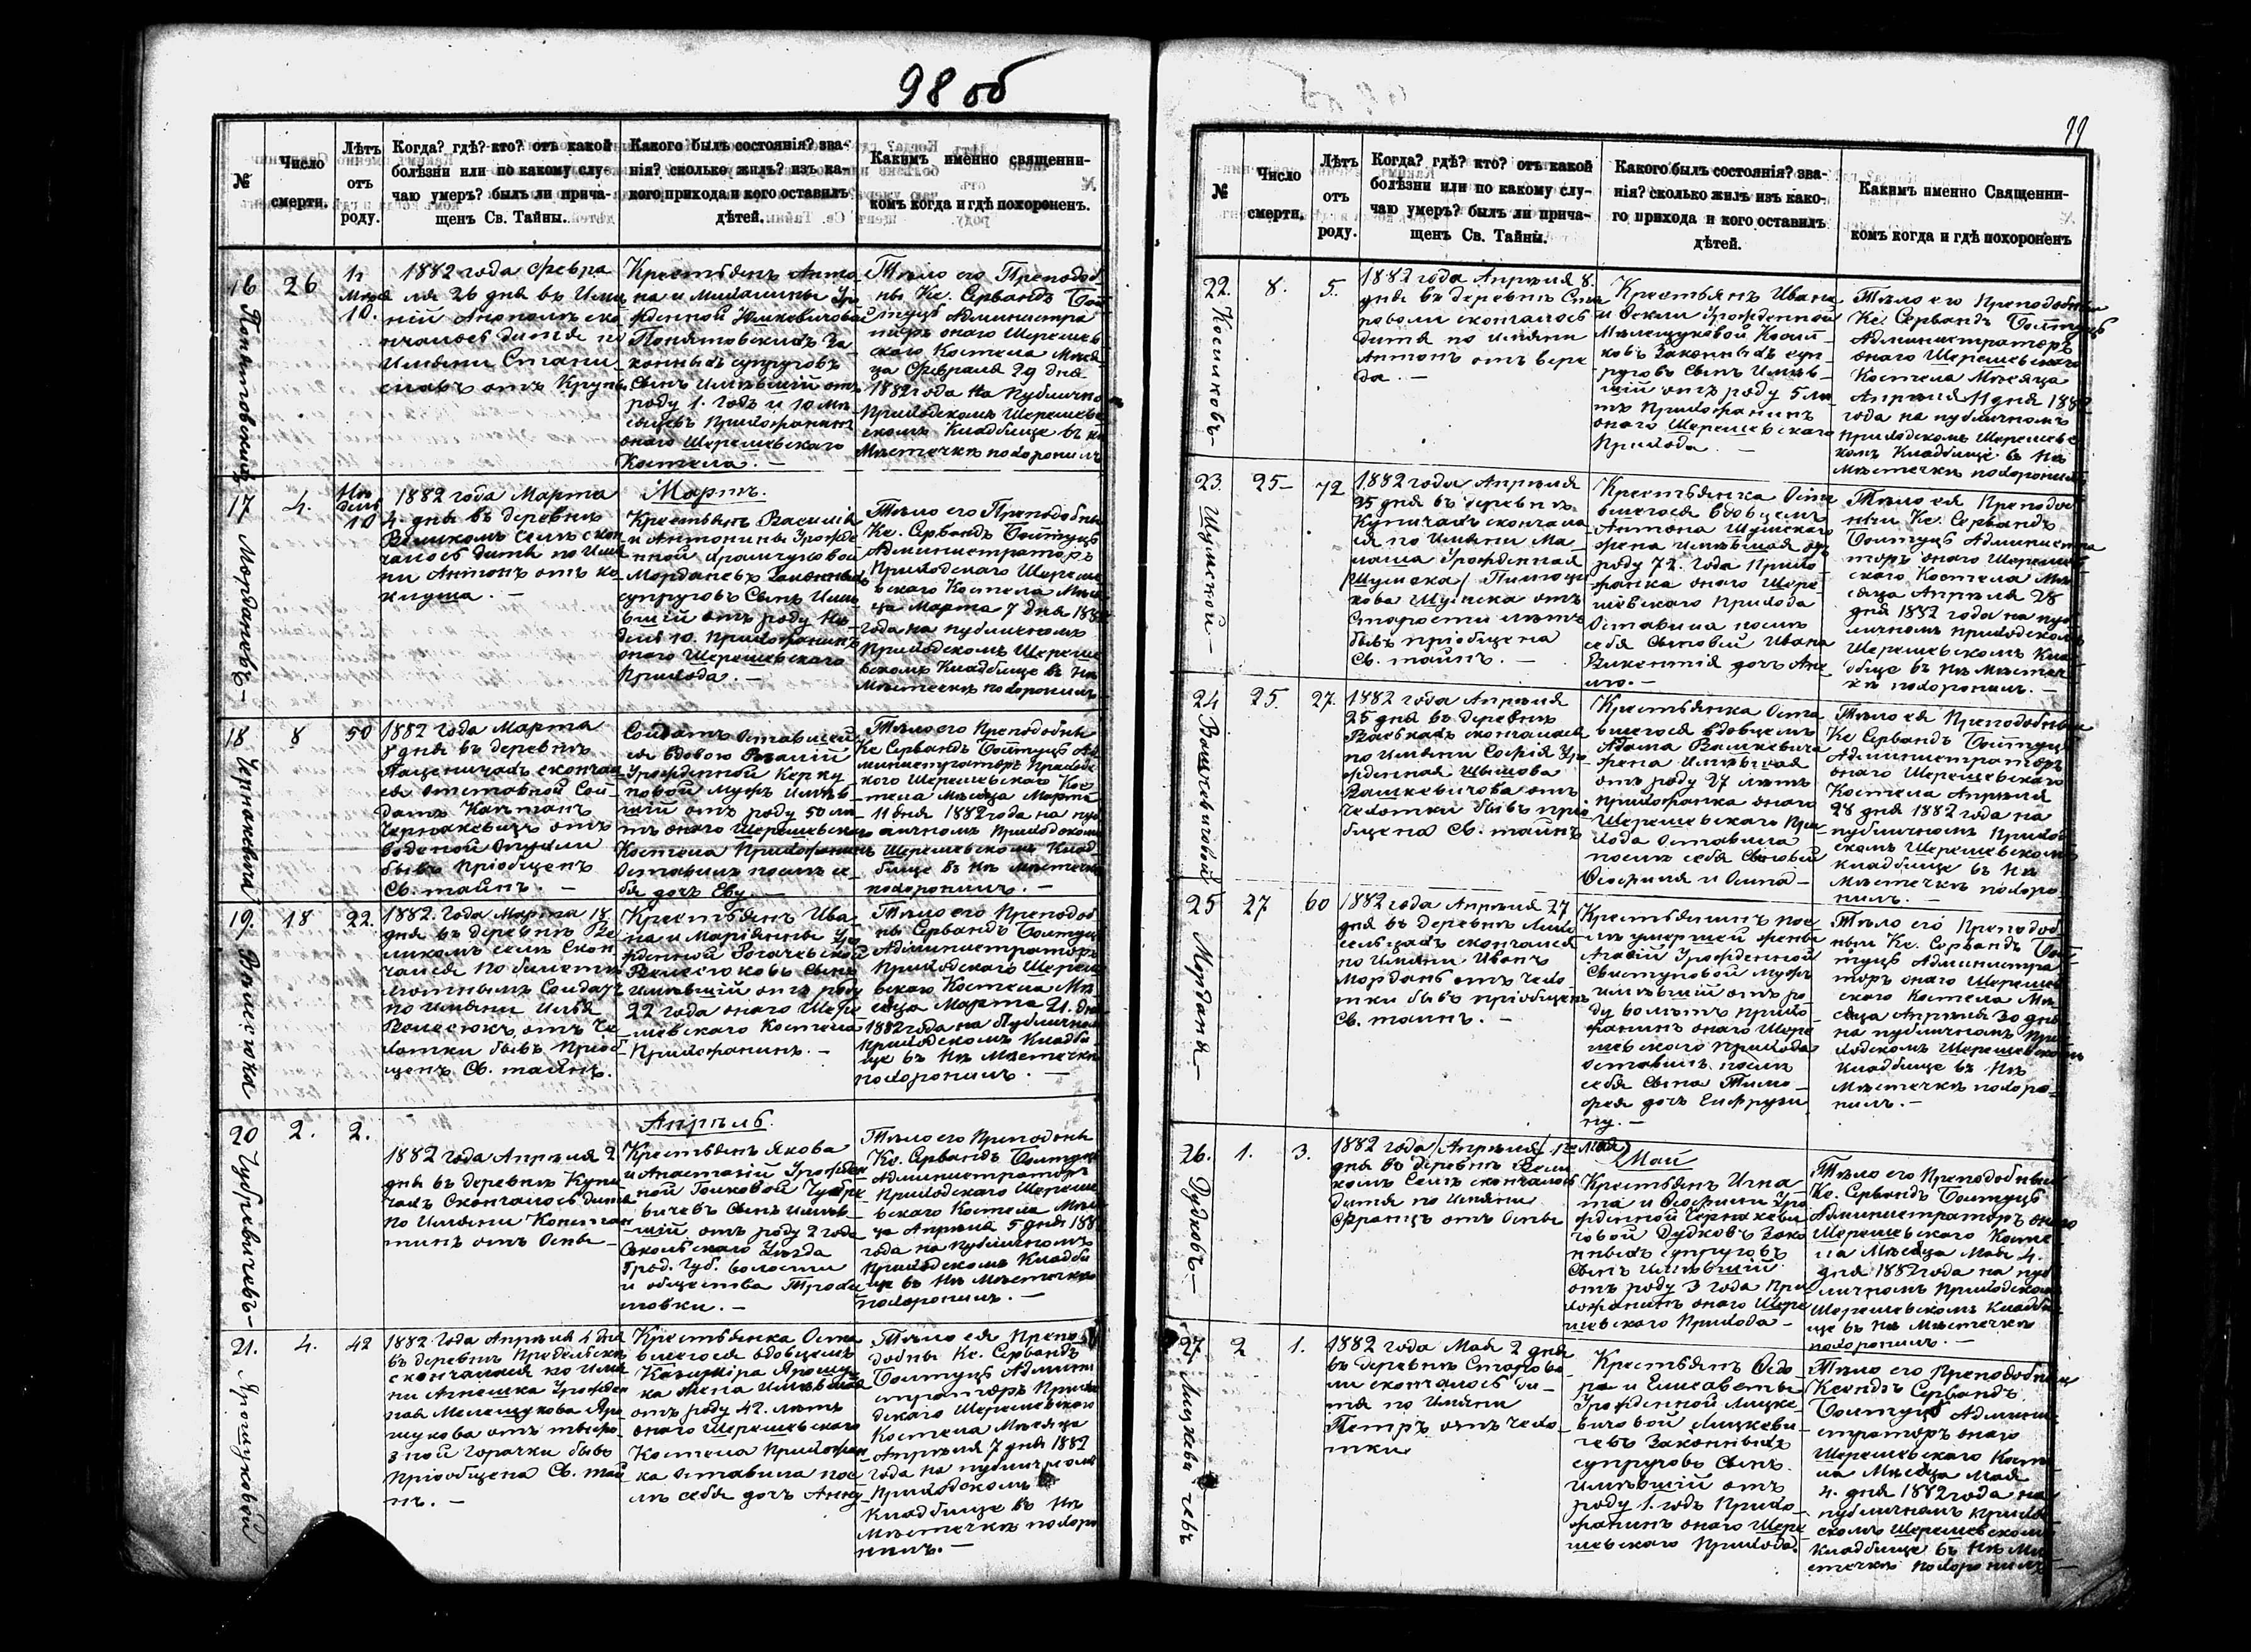 98 об
№
Число
смерти.
Лѣтъ
отъ
роду.
Когда? гдѣ? кто? отъ какой
болѣзни или по какому слу-
чаю умеръ? былъ ли прича-
щенъ Св. Тайны.
Какого былъ состоянія? зва-
нія? сколько жилъ? изъ ка-
кого прихода и кого оставилъ
дѣтей.
Какимъ именно священни-
комъ когда и гдѣ похороненъ.
16
26
1882 года Февра
ля 26 дня въ Имѣ
ніи
дитя по
Имѣни Стани
славъ отъ Крупъ
Крестьянъ Анто
на и
жденной Юшкевичовой
Понятовскихъ За
конныхъ супруговъ
Сынъ Имѣвшій отъ
роду 1. годъ и 10 мѣ
сяцевъ Прихожанинъ
онаго Шерешевскаго
Костела. —
Тѣло его Преподоб
ны Кс. Сервандъ
Администра
торъ онаго Шерешев
скаго Костела Мѣся
ца Февраля 29 дня
1882 года на Публичномъ
Приходскомъ Шерешев
скомъ Кладбище въ
Мѣстечкѣ похоронилъ
17
4.
10
1882 года Марта
4. дня въ деревнѣ
Великомъ Селѣ скон
чалось дитя по Имѣ
ни Антонъ отъ ко
клуша. —
Мартъ.
Крестьянъ Василія
и Антонины Урожде
нной
Морданевъ Законныхъ
супруговъ Сынъ Имѣ
вшій отъ роду Не
дѣль 10. Прихожанинъ
онаго Шерешевскаго
Прихода. —
Тѣло его Преподобны
Кс. Сервандъ
Администраторъ
Приходскаго Шереше
вскаго Костела Мѣся
ца Марта 7 дня 1882
года на публичномъ
Приходскомъ Шереше
вскомъ Кладбище въ
Мѣстечкѣ похоронилъ
Морданевъ —
18
8
50
1882 года Марта
8 дня въ деревнѣ
скончал
ся отставной Сол
датъ
Чернакевичъ отъ
водяной Опухли
бывъ Пріобщенъ
Св. таинъ. —
Солдатъ Оставшей
ся вдовою
Урожденной
мужъ Имѣв
шій отъ роду 50 лѣ
тъ онаго Шерешевскаго
Костела Прихожанинъ
Оставилъ послѣ се
бя дочь Еву —
Тѣло его Преподобны
Кс Сервандъ Ад
министраторъ Приход
скаго Шерешевскаго Кос
тела Мѣсяца Марта
11 дня 1882 года на пуб
личномъ Приходском
ъ Шерешевскомъ Клад
бище въ мѣстечкѣ
похоронилъ. —
Чернакевичъ
19.
18
22.
1882. года Марта 18.
дня въ деревнѣ Ве
ликомъ селѣ Скон
чался по билетъ
Солдатъ
по Имѣни Илья
Велесюкъ отъ Че
хотки бывъ Пріоб
щенъ Св. таинъ.
Крестьянъ Ива
на и Маріанны Уро
жденной Рогачевской
Велесюковъ Сынъ
Имѣвшій отъ роду
22 года онаго Шере
шевскаго Костела
Прихожанинъ. —
Тѣло его Преподоб
ны Сервандъ
Администраторъ
Приходскаго Шереше
вскаго Костела Мѣ
сяца Марта 21. дня
1882 года на Публичном
Приходскомъ Кладби
ще въ Мѣстечкѣ
похоронилъ. —
Велесюка
20
2.
2.
1882 года Апрѣля 2
дня въ деревнѣ Купи
чахъ Скончалось дитя
по Имѣни Констан
тинъ отъ Оспы —
Апрѣль.
Крестьянъ Якова
и Анастасіи Урожден
ной
Сынъ Имѣв
шій отъ роду 2 года
Сокольскаго Уѣзда
Грод. Губ. волости
и общества
Тѣло его Преподобны
Кс. Сервандъ
Администраторъ
Приходскаго Шереше
вскаго Костела Мѣся
ца Апрѣля 5 дня 188
года на публичномъ
Приходскомъ Кладби
ще въ Мѣстечкѣ
похоронилъ. —
21.
4.
42
1882 года Апрѣля 4 дня
въ деревнѣ
скончалася по Имѣ
ни Агнешка Урожден
ная Мелешукова Яро
шукова отъ
зной горячки бывъ
Пріобщена Св. таи
нъ. —
Крестьянка Оста
вшегося вдовцемъ
Казиміра Ярошу
ка Жена Имѣвшая
отъ роду 42. лѣтъ
онаго Шерешевскаго
Костела Прихожан
ка Оставила пос
лѣ себя дочь Анну
Тѣло ея Препо
добны Кс. Сервандъ
Админи
страторъ Прихо
дскаго Шерешевскаго
Костела Мѣсяца
Апрѣля 7 дня 1882
года на публичномъ
Приходскомъ
Кладбище въ
Мѣстечкѣ похоро
нилъ. —
Ярошуковой
99
№
Число
смерти.
Лѣтъ
отъ
роду.
Когда? гдѣ? кто? отъ какой
болѣзни или по какому слу-
чаю умеръ? былъ ли прича-
щенъ Св. Тайны.
Какого былъ состоянія? зва-
нія? сколько жилъ изъ како-
го прихода и кого оставилъ
дѣтей.
Какимъ именно Священни-
комъ когда и гдѣ похороненъ
22.
8.
5.
1882 года Апрѣля 8.
дня въ деревнѣ Ста
роволи скончалось
дитя по имѣни
Антонъ отъ вере
да. —
Крестьянъ Ивана
и Феклы Урожденной
ковъ Законныхъ суп
руговъ Сынъ Имѣв
шій отъ роду 5 лѣ
тъ Прихожанинъ
онаго Шерешевскаго
Прихода —
Тѣло его Преподобный
Кс. Сервандъ
Администраторъ
онаго Шерешевскаго
Костела Мѣсяца
Апрѣля 11 дня 1882
года на публичномъ
Приходскомъ Шерешевс
комъ Кладбище въ
Мѣстечкѣ похоронилъ
23.
25 —
72
1882 года Апрѣля
25 дня въ деревнѣ
Купичахъ скончала
ся по Имѣни Ма
Урожденная
отъ
Старости лѣтъ
бывъ пріобщена
Св. таинъ. —
Крестьянка Оста
вшегося вдовцемъ
Антона
жена имѣвшая отъ
роду 72. года Прихо
жанка онаго Шере
шевскаго Прихода
Оставила послѣ
себя Сыновей Ивана
Викентія дочь
Тѣло ея Преподоб
ный Кс. Сервандъ
Администра
торъ онаго Шерешев
скаго Костела Мѣ
сяца Апрѣля 28
дня 1882 года на пуб
личномъ приходскомъ
Шерешевскомъ Клад
бище въ Мѣстеч
кѣ похоронилъ. —
24
25.
27.
1882 года Апрѣля
25 дня въ деревнѣ
скончалась
по Имѣни Софія Уро
жденная
Вашкевичова отъ
Чехотки бывъ прио
бщена Св. таинъ
Крестьянка Оста
вшегося вдовцемъ
Адама Вашкевича
жена Имѣвшая
отъ роду 27 лѣтъ
прихожанка онаго
Шерешевскаго При
хода Оставила
послѣ себя Сыновей
Тѣло ея Преподобный
Кс Сервандъ
Администраторъ
онаго Шерешевскаго
Костела Апрѣля
28 дня 1882 года на
публичномъ Приход
скомъ Шерешевскомъ
кладбище въ
Мѣстечкѣ похоро
нилъ. —
Вашкевичовой
25
27
60
1882 года Апрѣля 27
дня въ деревнѣ
скончался
по Имѣни Иванъ
Морданъ отъ Чехо
тки бывъ пріобщенъ
Св. таинъ. —
Крестьянинъ пос
лѣ умершей жены
Агафіи Урожденной
мужъ
имѣвшій отъ ро
ду 60 лѣтъ прихо
жанинъ онаго Шере
шевскаго Прихода
оставилъ послѣ
себя Сына Тимо
фея дочь Ефрузи
ну. —
Тѣло его Преподоб
ный Кс. Сервандъ
Администра
торъ онаго Шерешев
скаго Костела Мѣ
сяца Апрѣля 30 дня
на публичномъ При
ходскомъ Шерешевскомъ
Кладбище въ
Мѣстечкѣ похоро
нилъ. —
Морданя —
26.
1.
3.
1882 года (Апрѣля) 1го Мая
дня въ деревнѣ Вели
комъ Селѣ скончалось
дитя по Имѣни
Францъ отъ Оспы
Май
Крестьянъ Игна
та и Уро
жденной Чернакеви
човой Дудковъ Зако
нныхъ супруговъ
Сынъ Имѣвшій
отъ роду 3 года При
хожанинъ онаго Шере
шевскаго Прихода —
Тѣло его Преподобный
Кс. Сервандъ
Администраторъ онаго
Шерешевскаго Косте
ла Мѣсяца Мая 4.
дня 1882 года на пуб
личномъ Приходском
Шерешевскомъ Кладби
ще въ Мѣстечкѣ
похоронилъ. —
Дудковъ —
27
2
1.
1882 года Мая 2 дня
въ деревнѣ Старово
ли скончалось ди
тя по Имѣни
Петръ отъ чехо
тки
Крестьянъ Федо
ра и Елисаветы
Урожденной Лицке
вичовой Лицкеви
чевъ Законныхъ
супруговъ Сынъ
имѣвшій отъ
роду 1. годъ Прихо
жанинъ онаго Шере
шевскаго Прихода.
Тѣло его Преподобный
Ксендзъ Сервандъ
Админи
страторъ онаго
Шерешевскаго Косте
ла Мѣсяца Мая
4. дня 1882 года на
публичномъ Приход
скомъ Шерешевскомъ
Кладбище въ Мѣ
стечкѣ похоронилъ —
Лицкевичевъ